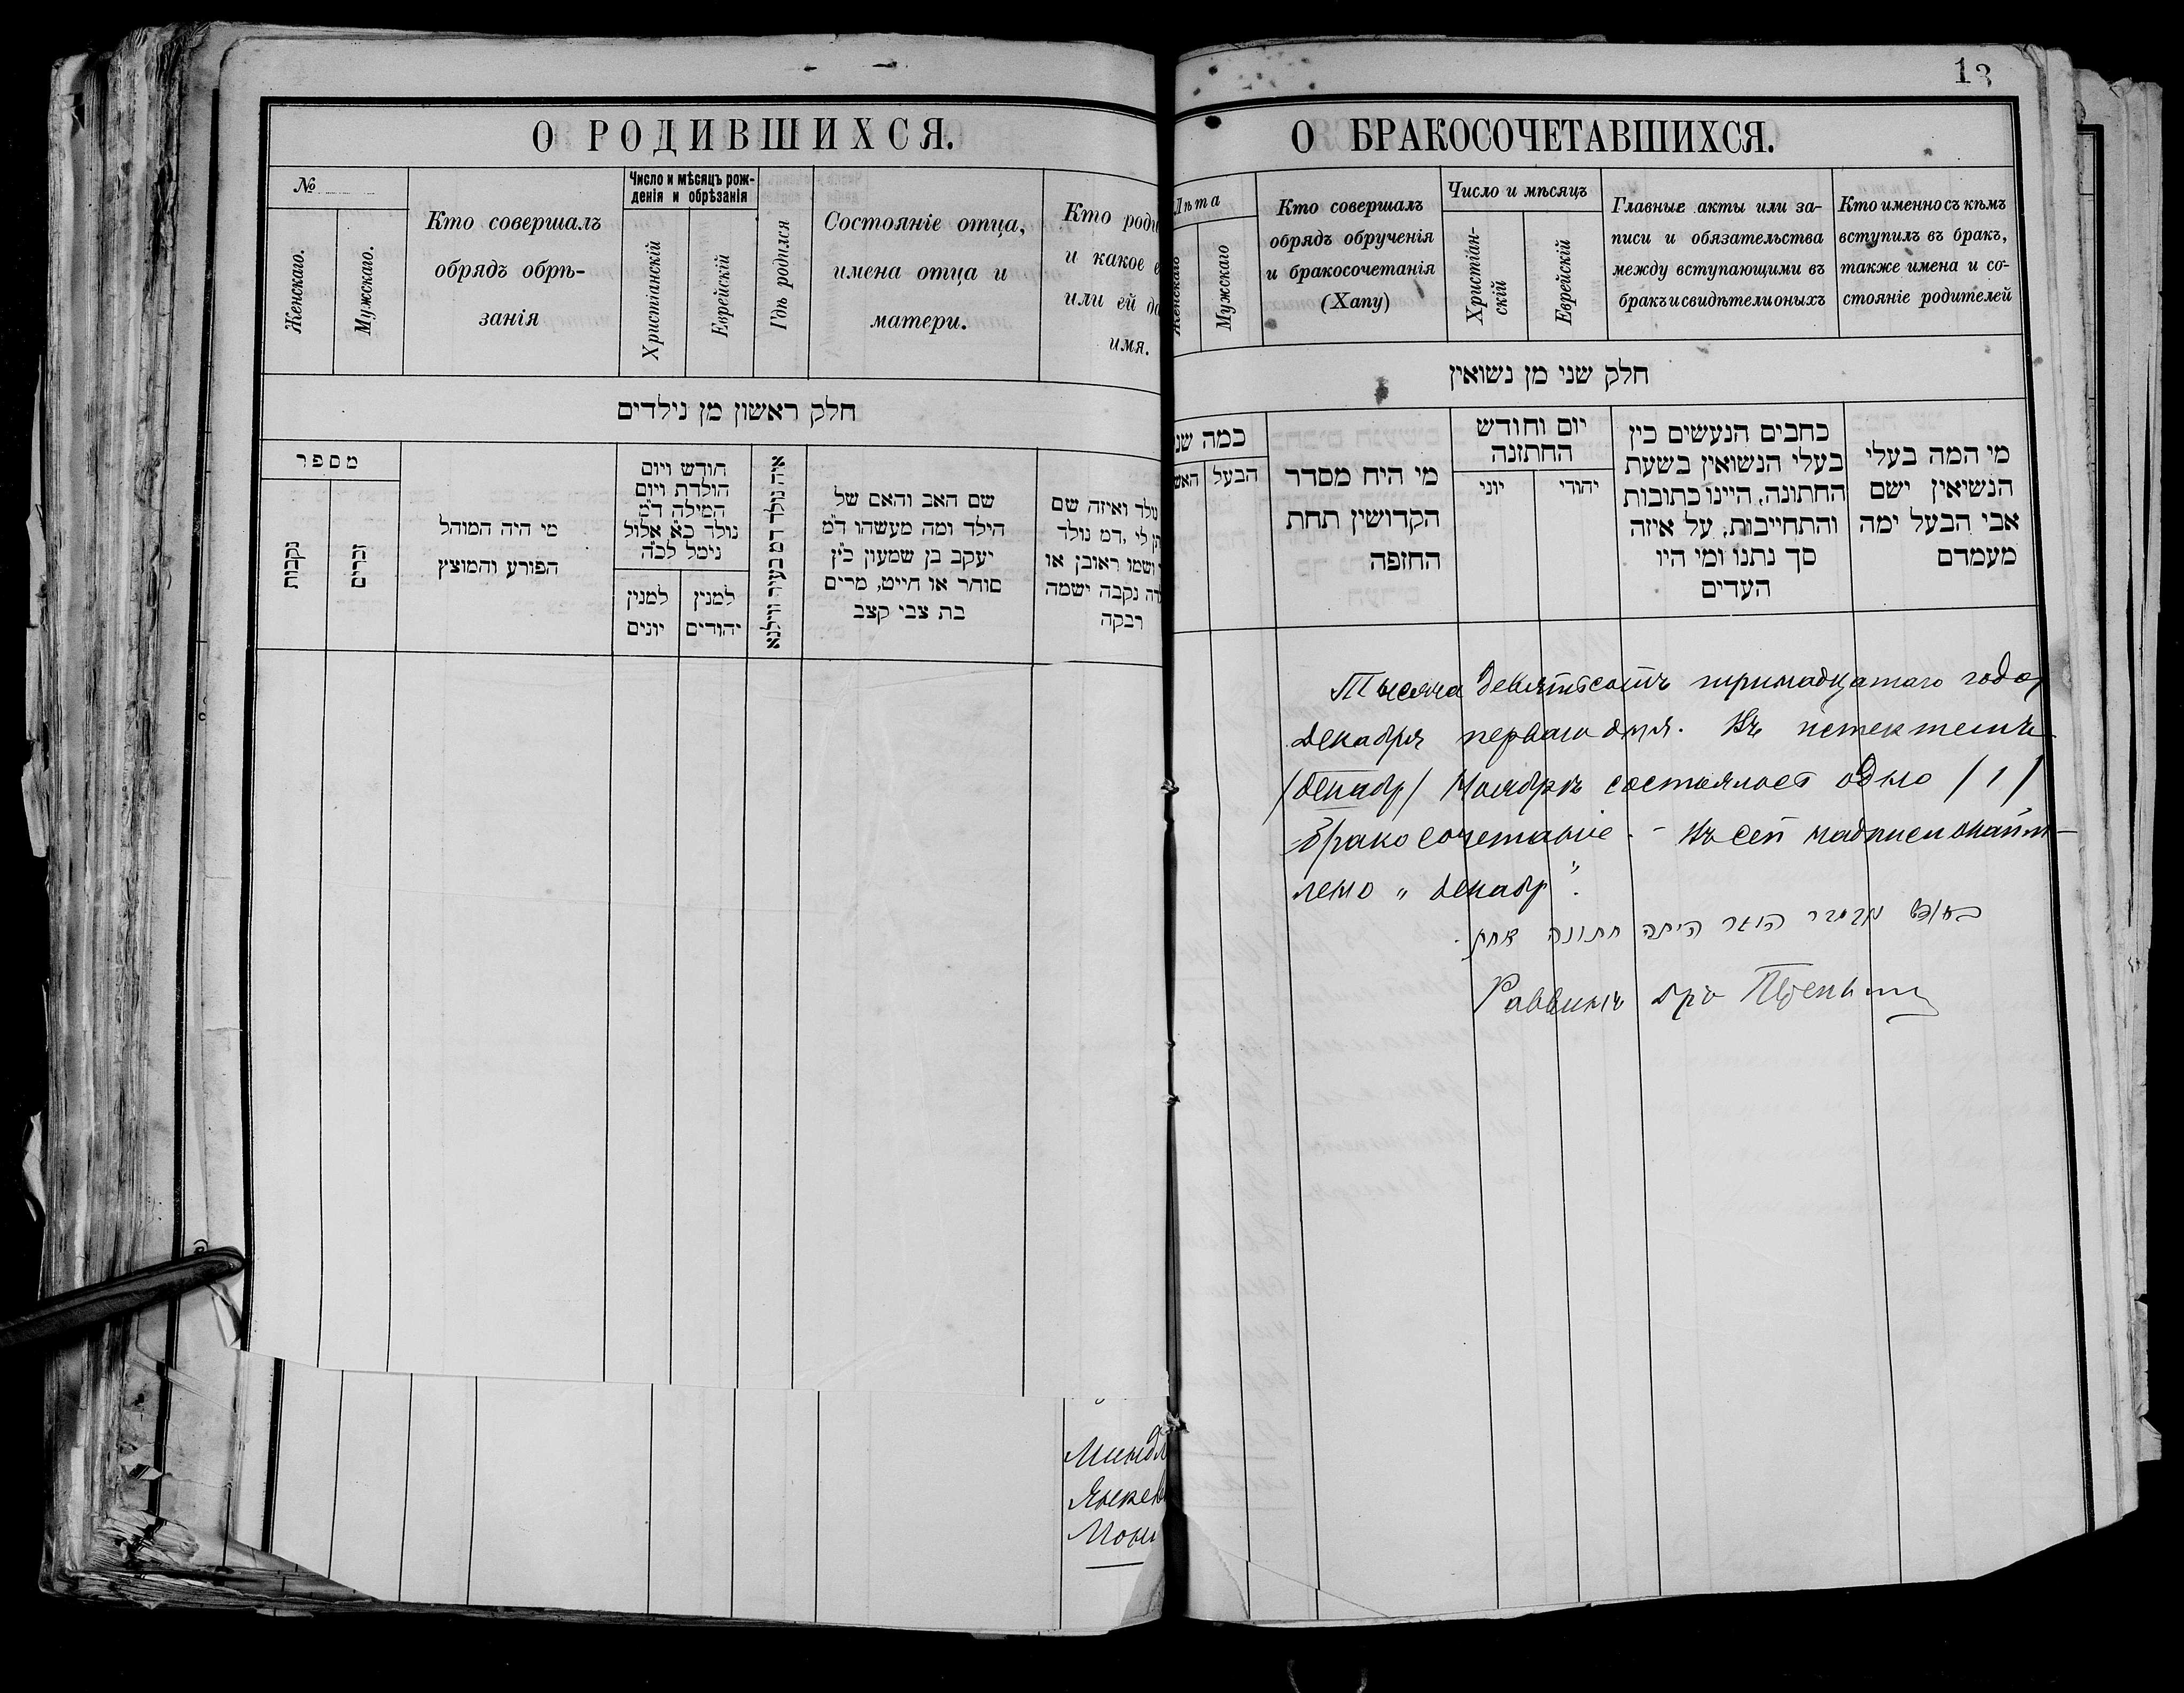 О РОДИВШИХСЯ.
№
Женскаго.
Мужскаго.
Кто совершалъ
обрядъ обрѣ-
занія
Число и мѣсяцъ рож-
денія и обрѣзанія
Христіанскій
Еврейскій
Гдѣ родился
Состояніе отца,
имена отца и
матери.
Кто роди
и какое е
или ей да
имя.
חלק ראשון מן נילדים
מספר
נקבות
זכרים
מי היה המוהל
הפורע והמוצץ
חודש ויום
הולדת ויום
המילה ד״מ
נולד כ״א אלול
נימל לכ״ה
למנין
יונים
למנין
יהודים
איה נולד דמ בעיר ווילנא
שם האב והאם של
הילד ומה מעשהו ד״מ
יעקב בן שמעון כ״ץ
סוחר או חייט, מרים
בת צבי קצב
נולד ואיזה שם
תן לי, דמ נולד
ושמו ראובן או
דה נקבה ישמה
רבקה
Миндл
Янкел
13
О БРАКОСОЧЕТАВШИХСЯ.
Лѣта
Женскаго
Мужскаго
Кто совершалъ
обрядъ обрученія
и бракосочетанія
(Хапу)
Число и мѣсяцъ
Христіан-
скій
Еврейскій
Главные акты или за-
писи и обязательства
между вступающими въ
бракъ и свидѣтели оныхъ
Кто именно съ кѣмъ
вступилъ въ бракъ,
также имена и со-
стояніе родителей
חלק שני מן נשואין
כמה שנ
האש
הבעל
מי היח מסדר
הקדושין תחת
החזפה
יום וחודש
החתזנה
יוני
יהודי
כחבים הנעשים כין
בעלי הנשואין בשעת
החתונה, היינו כתובות
והתחייבות, על איזה
סך נתנו ומי היו
העדים
מי המה בעלי
הנשיאין ישם
אבי הבעל ימה
מעמדם
Тысяча девятьсотъ тринадцатаго года
Декабря перваго дня. Въ истектемъ
/декабр/ Ноябрѣ состоялось одно /1/
бракосочетаніе. - Въ сей надписи
лено „декабр".
היתה חתונה אחת.
Раввинъ д-ръ